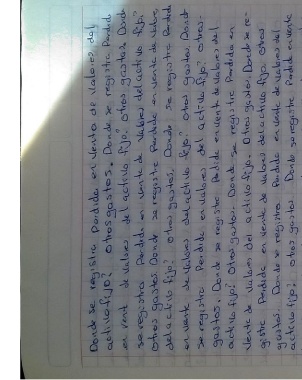 Donde se registra perdida en venta de valores del
activo fijo? Otros gastos. Donde se registra Perdida
en venta de valores de activo fijo? Otros gastos. Donde
se registra Perdida en venta de valores del activo fijo?
Otros gastos. Donde se registra Perdida en venta de valores
del activo fijo? Otros gastos. Donde se registra Perdida
en venta de valores del activo fijo? Otros gastos. Donde
se registra Perdida en valores del activo fijo? Otros
gastos. Donde se registra Perdida en venta de valores del
activo fijo? Otros gastos. Donde se registra Perdida en
venta de valores del activo fijo. Otros gastos. Donde se re-
gistra Perdida en venta de valores del activo fijo. Otros
gastos. Donde se registra Perdida en venta de valores del
activo fijo? Otros gastos. Donde se registra Perdida en venta